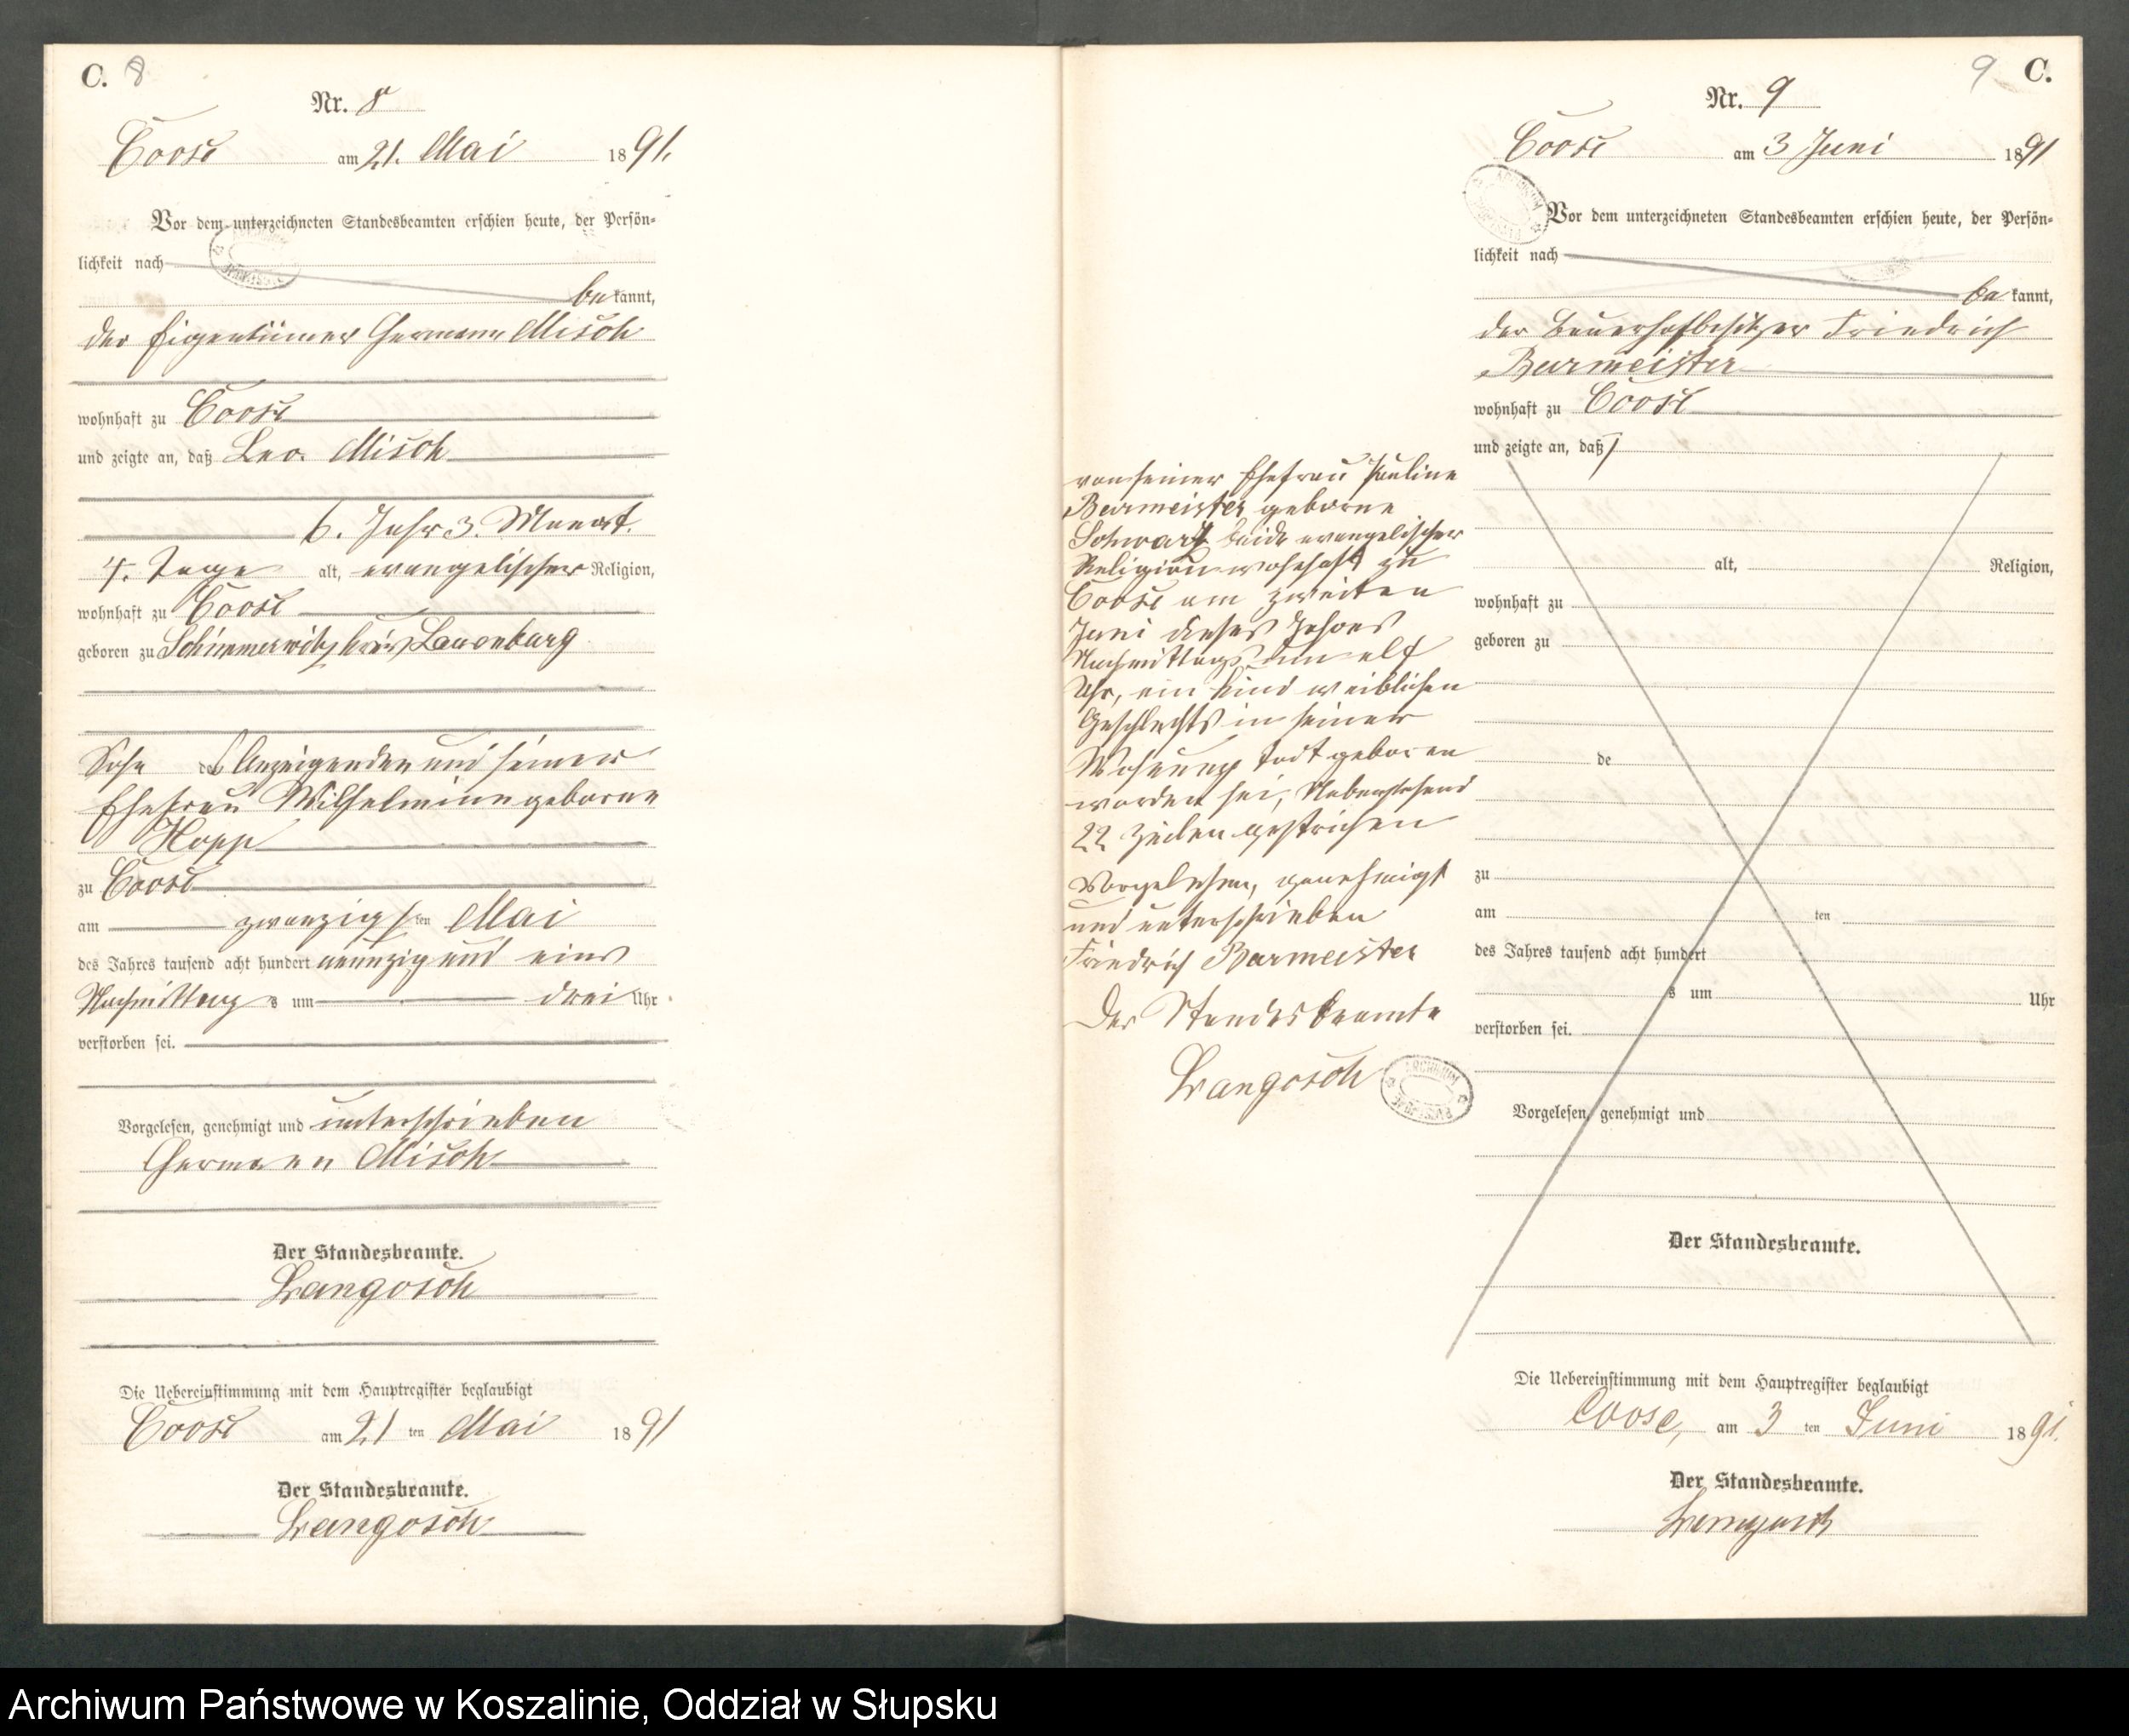 C. 8
Nr. 8
Coose am 21. Mai 1891.
Vor dem unterzeichneten Standesbeamten erschien heute, der Persön-
lichkeit nach
be kannt,
der Eigentümer Hermann Misch
wohnhaft zu Coose
und zeigte an, daß Leo Misch
6. Jahr 3. Monat.
4. Tage alt, evangelischer Religion,
wohnhaft zu Coose
geboren zu Schimmerwitz Kreis Lauenburg
Sohn des Anzeigenden und seiner
Ehefrau Wilhelmine geborne
Kopp
zu Coose
am zwanzigsten Mai
des Jahres tausend acht hundert neunzig und eins
Nachmittags um drei Uhr
verstorben sei.
Vorgelesen, genehmigt und unterschrieben
Hermann Misch
Der Standesbeamte.
Langosch
Die Uebereinstimmung mit dem Hauptregister beglaubigt
Coose am 21 ten Mai 1891
Der Standesbeamte.
Langosch
9 C.
Nr. 9
Coose am 3 Juni 1891
Vor dem unterzeichneten Standesbeamten erschien heute, der Persön-
lichkeit nach
be kannt,
der Bauerhofbesitzer Friedrich
Burmeister
wohnhaft zu Coose
und zeigte an, daß
von seiner Ehefrau Pauline
Burmeister geborne
Schwarz beide evangelischer
Religion wohnhaft zu
Coose am zweiten
Juni dieses Jahres
Nachmittags um elf
Uhr, ein Kind weiblichen
Geschlechts in seiner
Wohnung todt geboren
worden sei, Nebenstehend
22 Zeilen gestrichen
Vorgelesen, genehmigt
und unterschrieben
Friedrich Burmeister
Der Standesbeamte
Langosch
ARCHIWUM PAŃSTWOWE
alt, Religion,
wohnhaft zu
geboren zu
de
zu
am ten
des Jahres tausend acht hundert
s um Uhr
verstorben sei.
Vorgelesen, genehmigt und
Der Standesbeamte.
Die Uebereinstimmung mit dem Hauptregister beglaubigt
Coose, am 3 ten Juni 1891.
Der Standesbeamte.
Langosch
Archiwum Państwowe w Koszalinie, Oddział w Słupsku